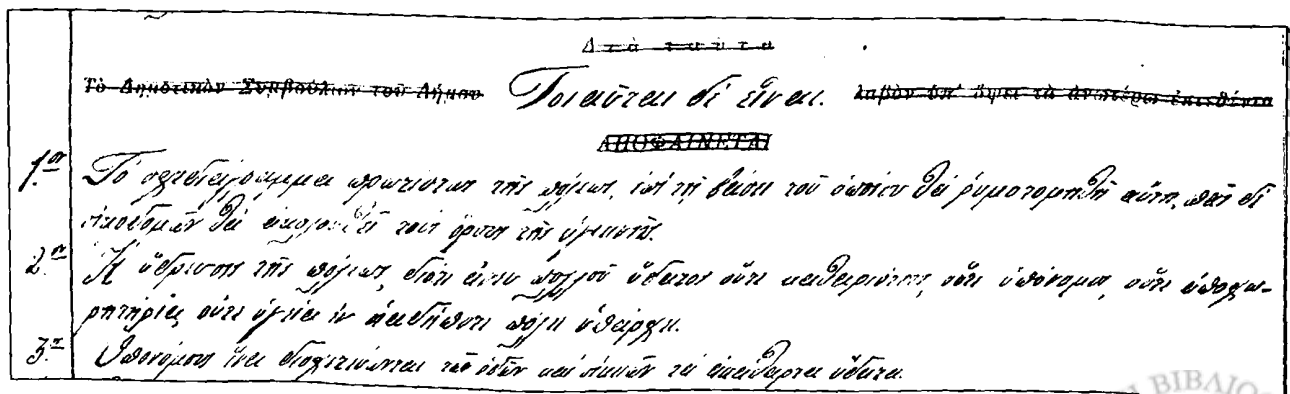 Διὰ ταῦτα
Τὸ Δημοτικὸν Συμβούλιον τοῦ Δήμου Τοιαῦται δὲ εἶναι. λαβὸν ὑπ' ὄψει τὰ ἀνωτέρω ἐκτεθέντα
ΑΠΟΦΑΙΝΕΤΑΙ
1ον Τὸ σχεδιάγραμμα πρωτίστως τῆς πόλεως, ἐπὶ τῇ βάσει τοῦ ὁποίου θὰ ῥυμοτομηθῇ αὕτη, πᾶς δὲ
οἰκοδομῶν θὰ ἀκολουθεῖ τοὺς ὅρους τῆς ὑγιεινῆς.
2ον Ἡ ὕδρευσις τῆς πόλεως, διότι ἄνευ πολλοῦ ὕδατος οὔτε καθαριότης, οὔτε ὑπόνομοι, οὔτε ἀποχω-
ρητήρια, οὔτε ὑγεία ἐν οἱᾳδήποτε πόλει ὑπάρχει.
3ον Ὑπονόμους ἵνα διοχετεύωνται τῶν ὁδῶν καὶ οἰκιῶν τὰ ἀκάθαρτα ὕδατα.
ΒΙΒΛΙΟ